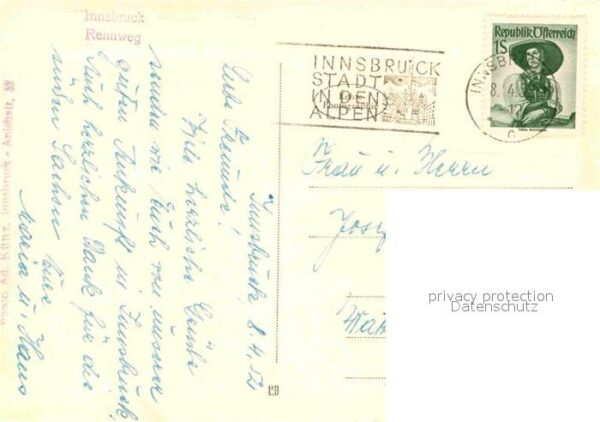 Innsbruck
Rennweg
Photo Ad. Künz, Innsbruck - Anichstr.
INNSBRUCK
STADT
IN DEN
ALPEN
Republik Österreich
1S
INNSBRUCK
8. 4.
Innsbruck 8.4.52
Liebe Freunde!
Viele herzliche Grüße
senden wir Euch von unserer
guten Ankunft in Innsbruck.
Auch herzlichen Dank für die
Sachen
Maria u. Hans
Frau u. Herrn
Josef
privacy protection
Datenschutz